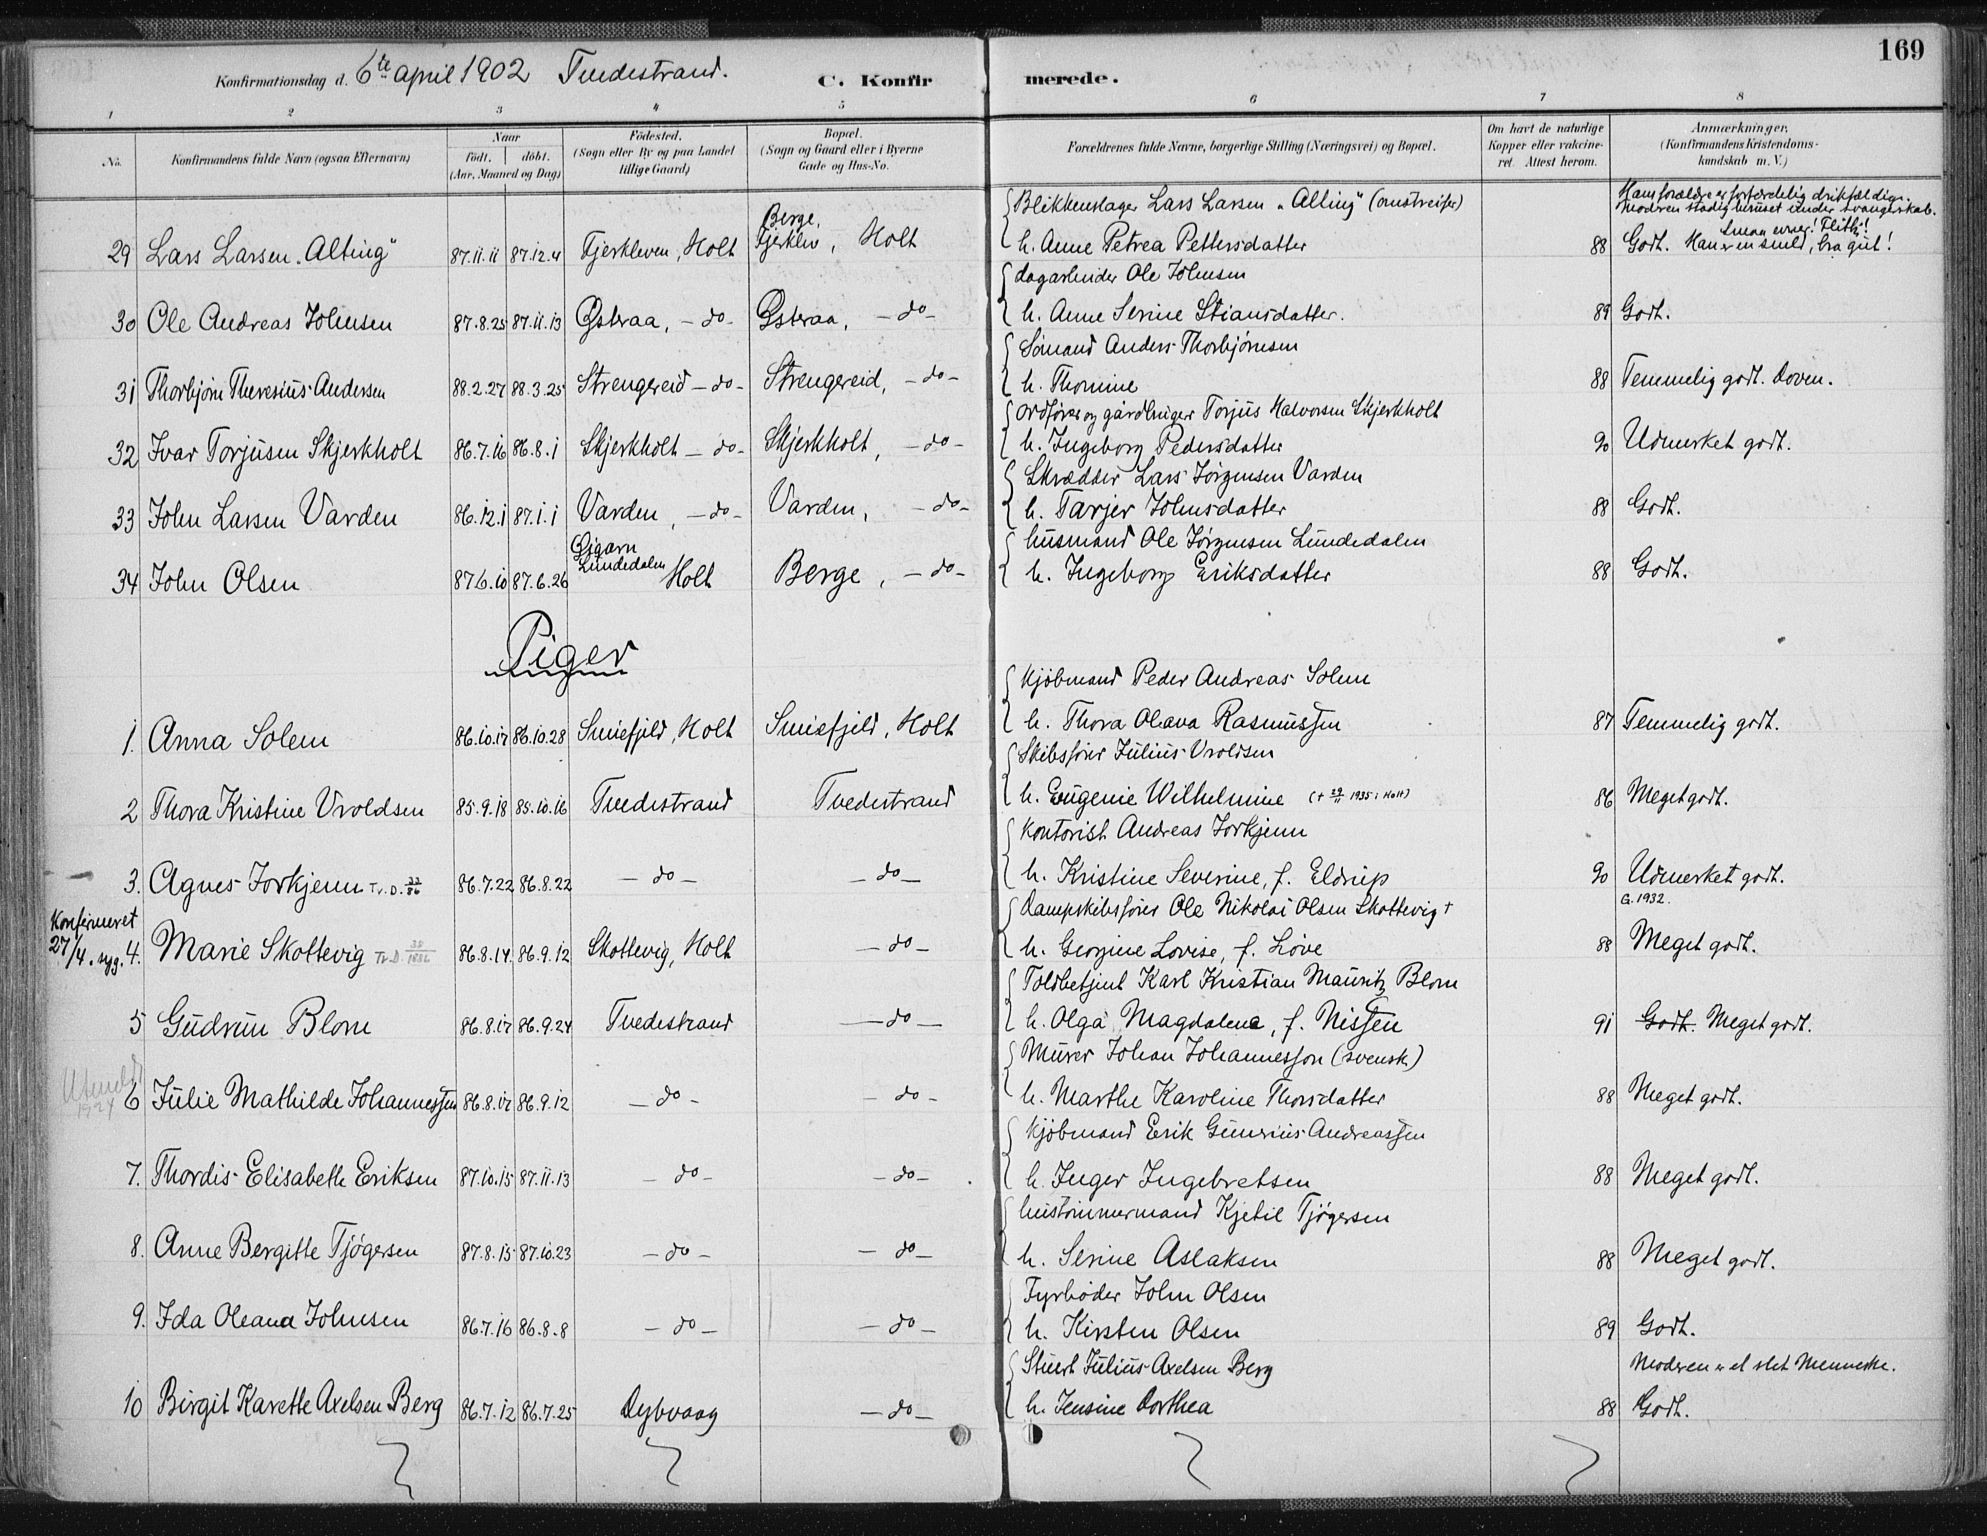 169
Konfirmationsdag d. 6te april 1902 Tvedestrand. C. Konfirmerede.
1 2 3 4 5 6 7 8
No. Konfirmandens fulde Navn (ogsaa Efternavn) Naar født. døbt. (Aar, Maaned og Dag) Fødested. (Sogn eller By og paa Landet tillige Gaard) Bopæl. (Sogn og Gaard eller i Byerne Gade og Hus-No. Forældrenes fulde Navne, borgerlige Stilling (Næringsvei) og Bopæl. Om havt de naturlige Kopper eller vakcineret. Attest herom. Anmærkninger. (Konfirmandens Kristendomskundskab m. V.)
Blikkenslager Lars Larsen "Alting" (omstreifer) Hans forældre er forfærdelig drikfældige. Moderen stadig beruset under svangerskab.
29 Lars Larsen "Alting" 87.11.11 87.12.4 Fjerkleven, Holt Berge, Fjerklev, Holt h. Anne Petrea Pettersdatter 88 Godt. Smaa evner! Flitti! Han er en snild, bra gut!
dagarbeider Ole Johnsen
30 Ole Andreas Johnsen 87.8.25 87.11.13 Østeraa, -do- Østeraa, -do- h. Anne Serine Stiansdatter. 89 Godt.
Sømand Anders Thorbjørnsen
31 Thorbjørn Theresius Andersen 88.2.27 88.3.25 Strengereid -do- Strengereid, -do- h. Thomine 88 Temmelig godt. Doven.
Ordfører og gårdbruger Torjus Halvorsen Skjerkholt
32 Ivar Torjusen Skjerkholt 86.7.16 86.8.1 Skjerkholt -do- Skjerkholt, -do- h. Ingeborg Pedersdatter 90 Udmerket godt.
Skrædder Lars Jørgensen Varden
33 John Larsen Varden 86.12.1 87.1.1 Varden, -do- Varden, -do- h. Tarjer Johnsdatter 88 Godt.
husmand Ole Jørgensen Lundedalen
34 John Olsen 87.6.10 87.6.26 Lundedalen Holt Berge, -do- h. Ingeborg Eriksdatter 88 Godt.
Piger
Kjøbmand Peder Andreas Solem
1. Anna Solem 86.10.17 86.10.28 Smiefjeld, Holt Smiefjeld, Holt h. Thora Olava Rasmussen 87 Temmelig godt.
Skibsfører Julius Vroldsen
2 Thora Kristine Vroldsen 85.9.18 85.10.16 Tvedestrand Tvedestrand h. Eugenie Wilhelmine (+ 29/11 1935 i Holt) 86 Meget godt.
Kontorist Andreas Jorkjenn
3. Agnes Jorkjenn Tv. D. 33/86 86.7.22 86.8.22 -do- -do- h. Kristine Severine, f. Eldrup 90 Udmerket godt.
Dampskibsfører Ole Nikolai Olsen Skottevig + G. 1932.
Konfirmeret 27/4. syg. 4. Marie Skottevig 86.8.14. 86.9.12 Skottevig, Holt -do- h. Georgine Lovise, f. Løve 88 Meget godt.
Toldbetjent Karl Kristian Mauritz Blom
5 Gudrun Blom 86.8.17 86.9.24 Tvedestrand -do- h. Olga Magdalene, f. Nissen 91 Godt. Meget godt.
Murer Johan Johannesson (svensk)
Utmeldt 1924 6 Julie Mathilde Johannessen 86.8.17 86.9.12 -do- -do- h. Marthe Karoline Thorsdatter 88 Meget godt.
Kjøbmand Erik Gunerius Andreassen
7. Thordis Elisabeth Eriksen 87.10.15 87.11.13 -do- -do- h. Inger Ingebretsen 88 Meget godt.
hustømmermand Kjetil Tjøgersen
8. Anne Bergitte Tjøgersen 87.8.15 87.10.23 -do- -do- h. Serine Aslaksen 88 Meget godt.
Fyrbøder John Olsen
9. Ida Oleana Johnsen 86.7.16 86.8.8 -do- -do- h. Kirsten Olsen 89 Godt.
Stuert Julius Axelsen Berg Moderen er et slet Menneske.
10 Birgit Karette Axelsen Berg 86.7.12 86.7.25 Dybvaag -do- h. Jensine Dorthea 88 Godt.